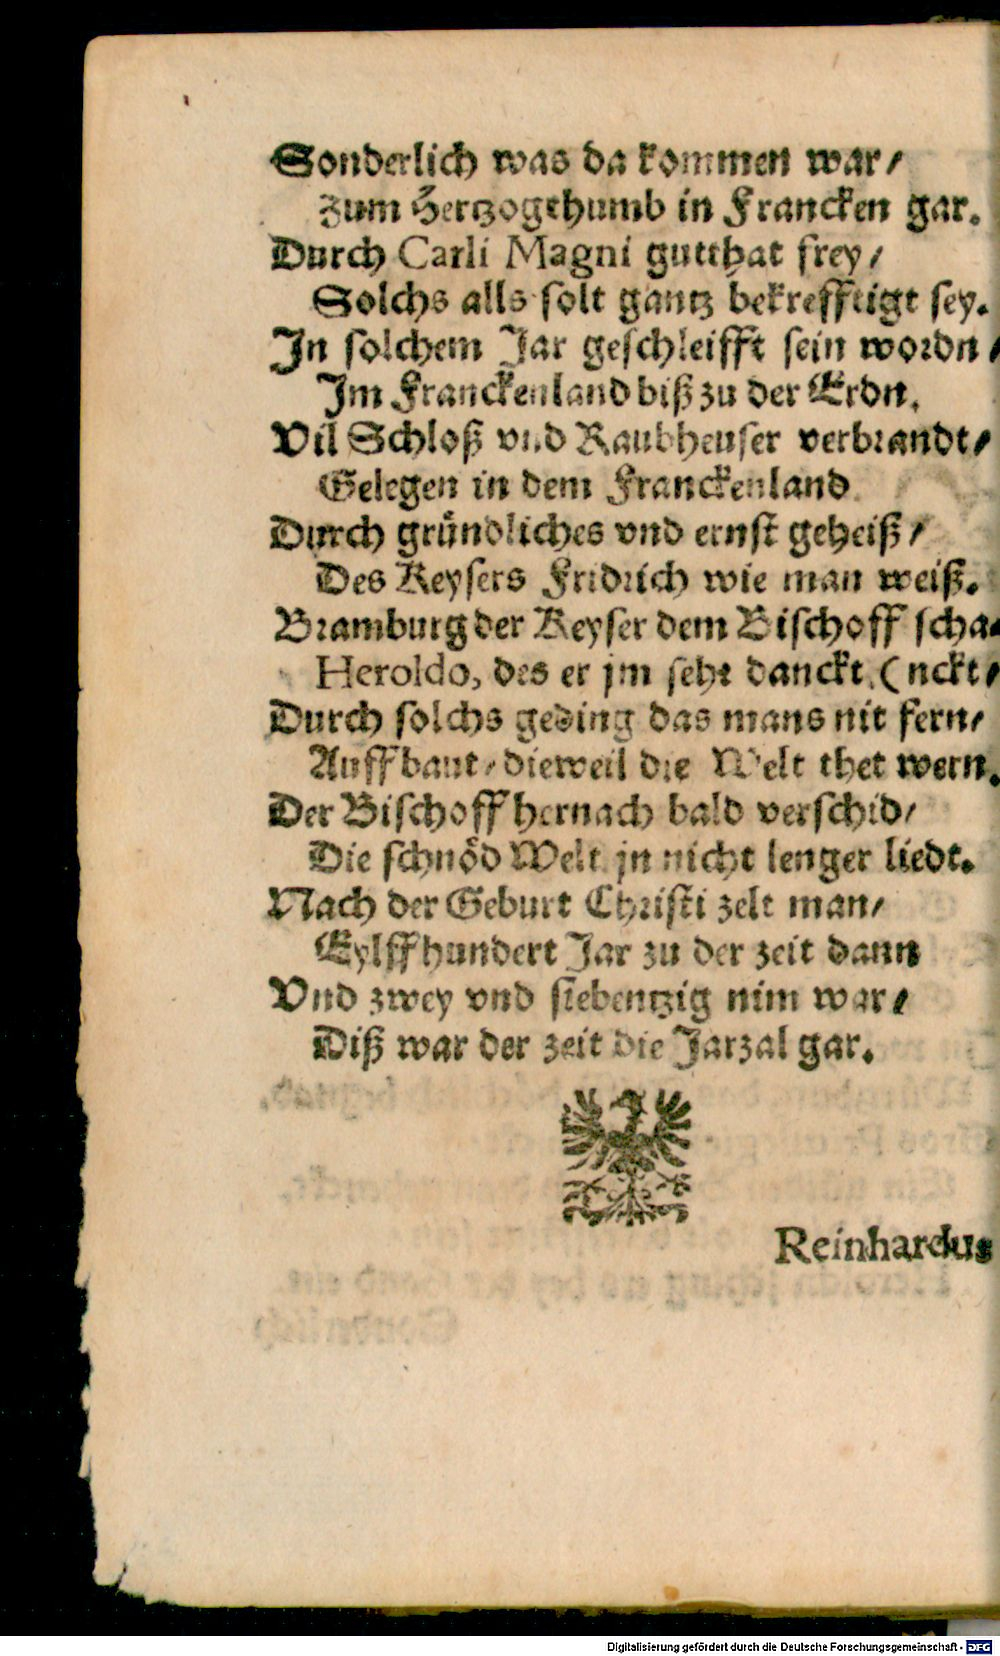 Sonderlich was da kommen war/
Zum Hertzogthumb in Francken gar.
Durch Carli Magni gutthat frey/
Solchs alls solt gantz bekrefftigt sey.
In solchem Jar geschleifft sein wordn/
Im Franckenland biß zu der Erdn.
Vil Schloß vnd Raubheuser verbrandt/
Gelegen in dem Franckenland
Durch gründliches vnd ernst geheiß/
Des Keysers Fridrich wie man weiß.
Bramburg der Keyser dem Bischoff scha-
Heroldo, des er jm sehr danckt. (nckt/
Durch solchs geding das mans nit fern/
Auffbaut/ dieweil die Welt thet wern.
Der Bischoff hernach bald verschid/
Die schnöd Welt jn nicht lenger liedt.
Nach der Geburt Christi zelt man/
Eylffhundert Jar zu der zeit dann
Vnd zwey vnd siebentzig nim war/
Diß war der zeit die Jarzal gar.
Reinhardus
Digitalisierung gefördert durch die Deutsche Forschungsgemeinschaft - DFG